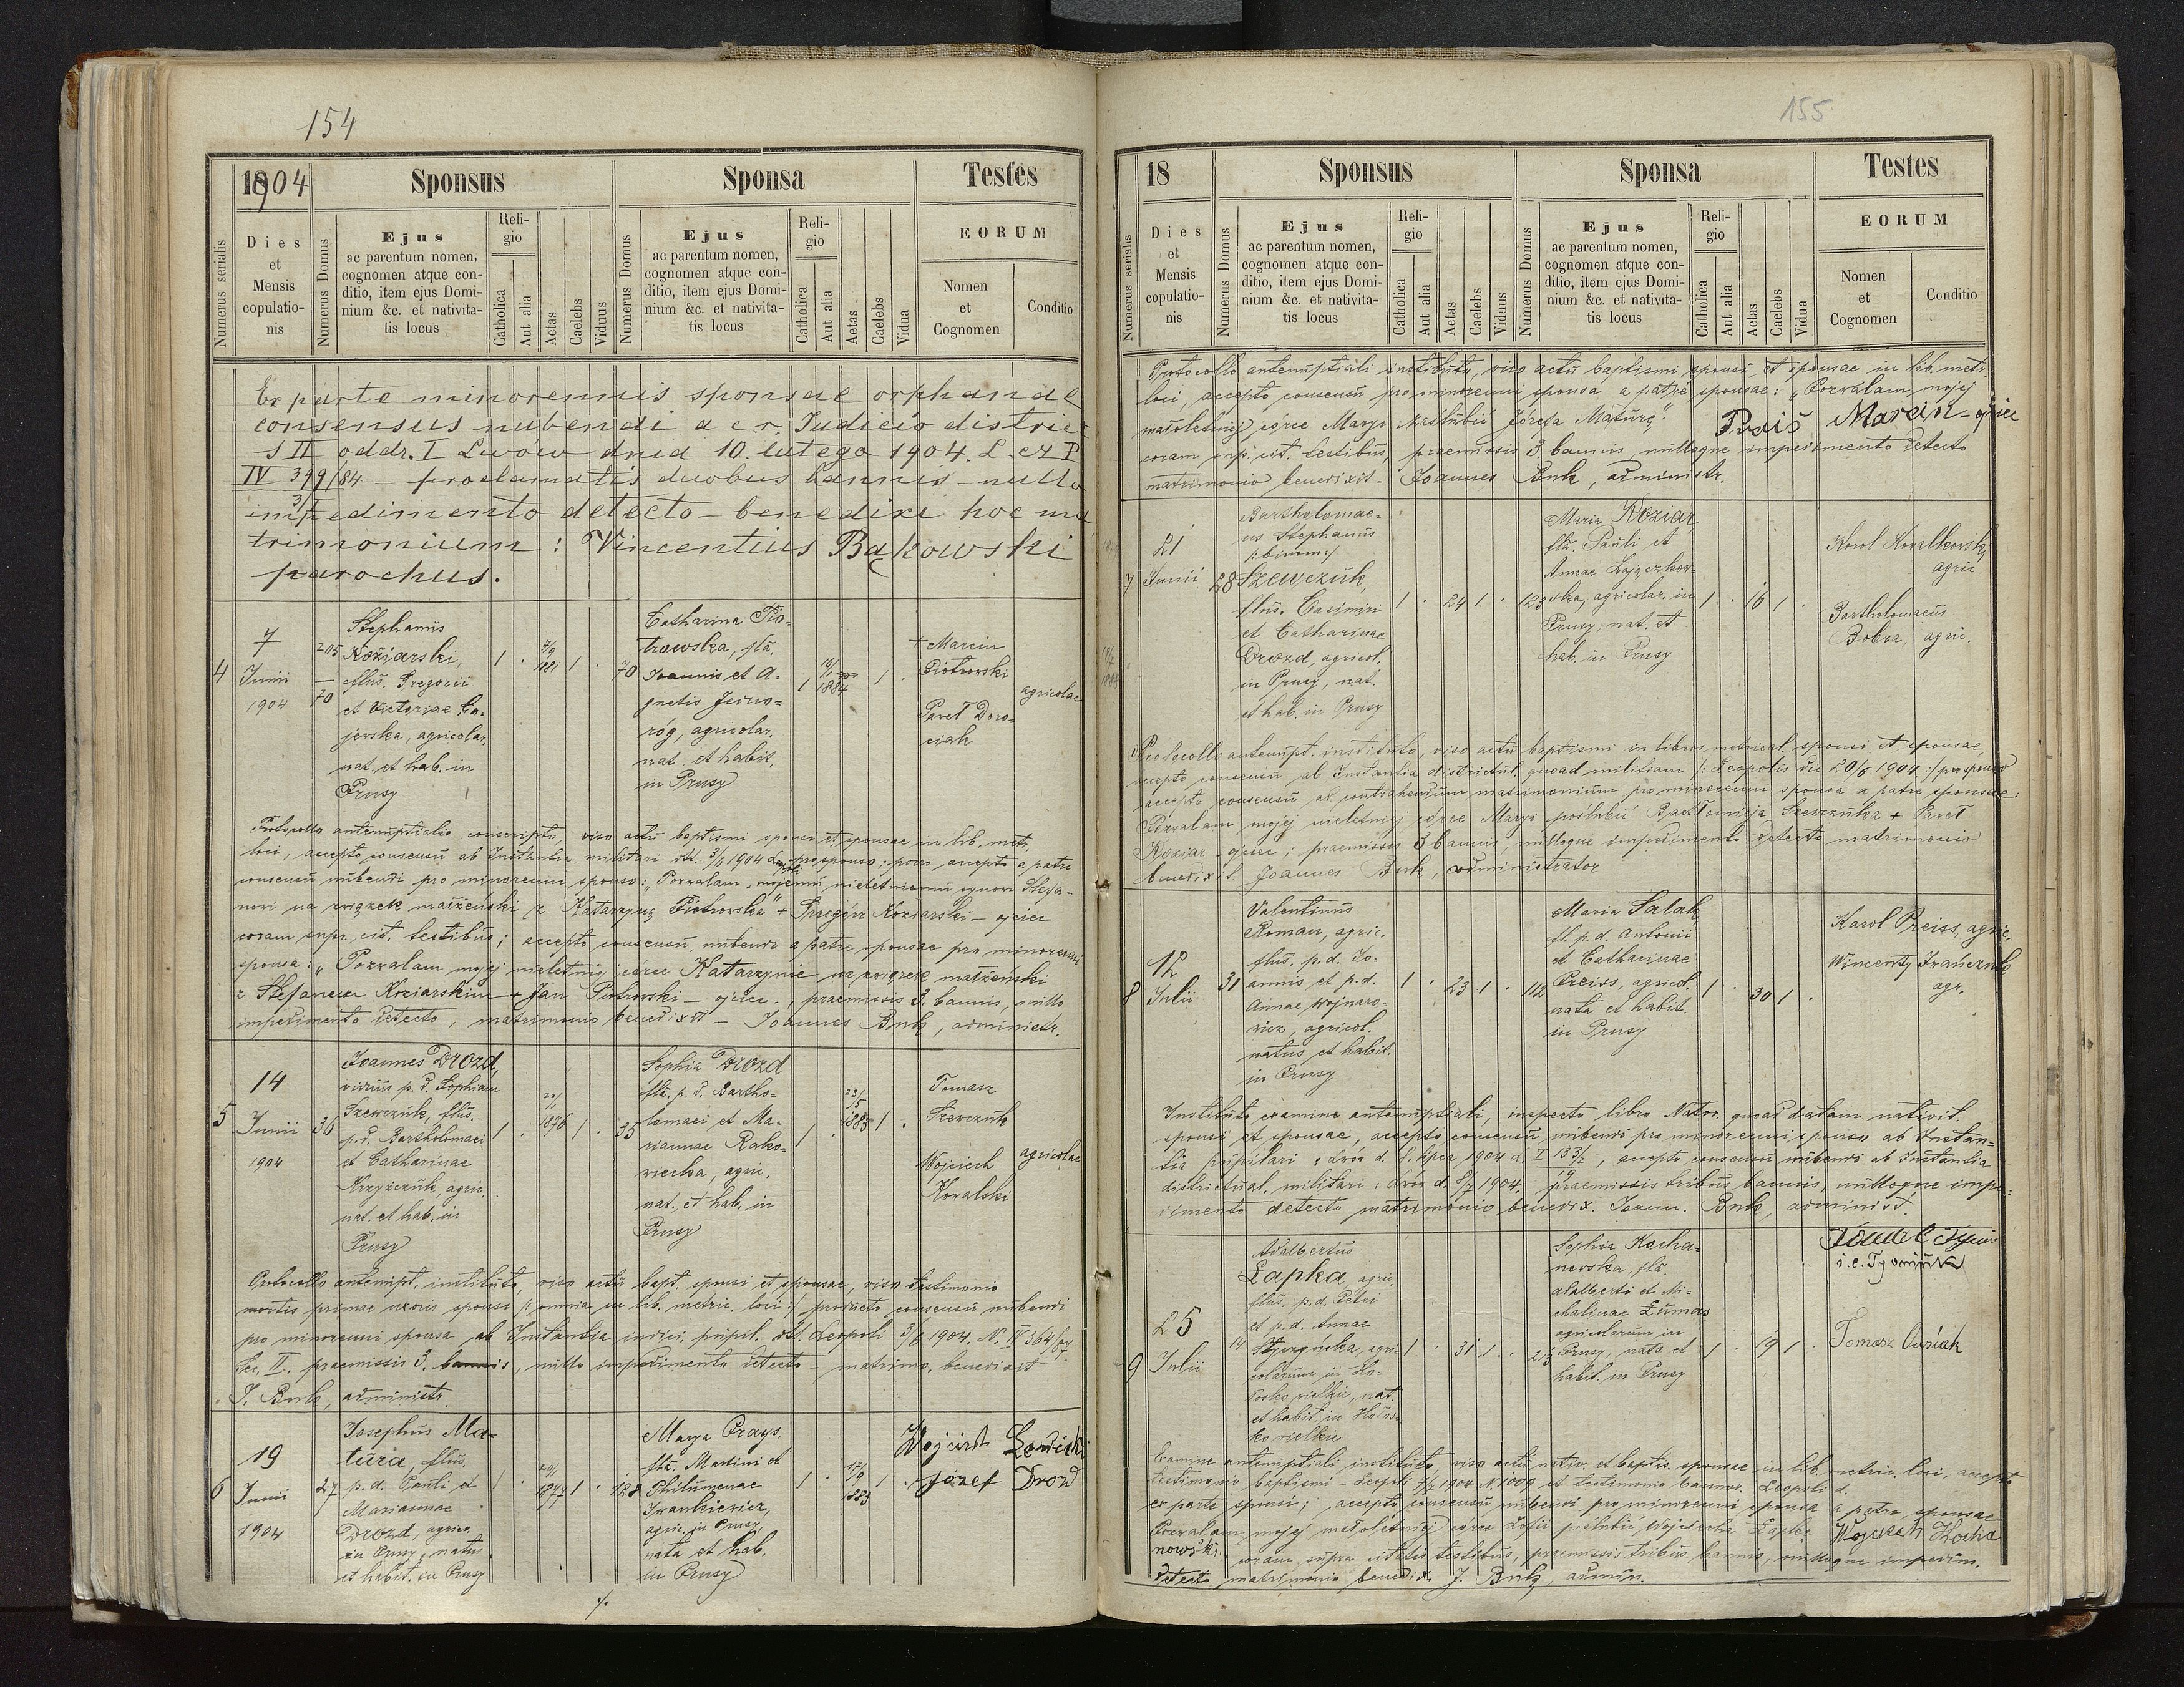 154
1904
Sponsus
Sponsa
Testes
Numerus serialis
Dies
et
Mensis
copulatio-
nis
Numerus Domus
Ejus
ac parentum nomen,
cognomen atque con-
ditio, item ejus Domi-
nium &c. et nativita-
tis locus
Reli-
gio
Catholica
Aut alia
Aetas
Caelebs
Viduus
Numerus Domus
Ejus
ac parentum nomen,
cognomen atque con-
ditio, item ejus Domi-
nium &c. et nativita-
tis locus
Reli-
gio
Catholica
Aut alia
Aetas
Caelebs
Vidua
EORUM
Nomen
et
Cognomen
Conditio
Ex parte minorennis sponsae orphanae
consensus nubendi a c. r. Judicio district
S II oddz. I Lwów dnia 10. lutego 1904. L. cz P
IV 399/84 – proclamatis duobus bannis – nullo
3/I
impedimento detecto – benedixi hoc ma
trimonium: Vincentius Bąkowski
parochus.
4
7
Junii
1904
205
70
Stephanus
Koziarski,
flius. Gregorii
et Victoriae Ga-
jerska, agricolar.
nat. et hab. in
Prusy
1 . 7/9 1881 1 .
70
Catharina Pio-
trowska, fla.
Joannis et A-
gnetis Jedno-
róg, agricolar.
nat. et habit.
in Prusy
1 1884 1 .
+ Marcin
Piotrowski
Paweł Doro-
ciak
agricolae
Protocollo antenuptiali conscripto, viso actu baptismi sponsi et sponsae in lib. metr.
loci, accepto consensu ab Instantia militari dd. 3/6 1904 pro sponso; porro accepto a patre
consensu nubendi pro minorenni sponso: "Pozwalam mojemu nieletniemu synowi Stefa-
nowi na związek małżeński z Katarzyną Piotrowską" + Grzegórz Koziarski – ojciec
coram supr. cit. testibus; accepto consensu nubendi a patre sponsae pro minorenni
sponsa: "Pozwalam mojej nieletniej córce Katarzynie na związek małżeński
z Stefanem Koziarskim + Jan Piotrowski – ojciec., praemissis 3. bannis, nullo
impedimento detecto, matrimonio benedixit – Joannes Bnk, administr.
5
14
Junii
1904
36
Joannes Drozd
viduus p. d. Sophiam
Szewczuk, flius.
p. d. Bartholomaei
et Catharinae
Krzyżczuk, agric.
nat. et hab. in
Prusy
1 . 1876 1 .
35
Sophia Drozd
fla. p. d. Bartho-
lomaei et Ma-
riannae Rako-
wiecka, agric.
nat. et hab. in
Prusy
1 . 23/5 1883 1 .
Tomasz
Szewczuk
Wojciech
Kowalski
agricolae
Protocollo antenupt. instituto, viso actu bapt. sponsi et sponsae, viso testimonio
mortis primae uxoris sponsi /: omnia in lib. metric. loci :/ producto consensu nubendi
pro minorenni sponsa ab Instantia judici. pupil. dd. Leopoli 3/6 1904. N. IV 364/87.
Sec. II., praemissis 3. bannis, nullo impedimento detecto – matrimo. benedixit
J. Bnk, administr.
6
19
Junii
1904
27
Josephus Ma-
tura, flius.
p. d. Pauli et
Mariannae
Drozd, agrico.
in Prusy, natus
et habit. in Prusy
1 . 1877 1 .
128
Marya Prays
fla. Martini et
Philumenae
Iwankiewicz,
agric. in Prusy,
nata et hab.
in Prusy
1 . 17/9 1883 1 .
Wojciech
Józef Drozd
./.
155
18
Sponsus
Sponsa
Testes
Numerus serialis
Dies
et
Mensis
copulatio-
nis
Numerus Domus
Ejus
ac parentum nomen,
cognomen atque con-
ditio, item ejus Domi-
nium &c. et nativita-
tis locus
Reli-
gio
Catholica
Aut alia
Aetas
Caelebs
Viduus
Numerus Domus
Ejus
ac parentum nomen,
cognomen atque con-
ditio, item ejus Domi-
nium &c. et nativita-
tis locus
Reli-
gio
Catholica
Aut alia
Aetas
Caelebs
Vidua
EORUM
Nomen
et
Cognomen
Conditio
Protocollo antenuptiali instituto, viso actu baptismi sponsi et sponsae in lib. metr.
loci, accepto consensu pro minorenni sponsa a patre sponsae: "Pozwalam mojej
małoletniej córce Maryi zaślubić Józefa Maturę". Prais Marcin – ojciec
coram sup. cit. testibus, praemissis 3 bannis nulloque impedimento detecto
matrimonio benedixit – Joannes Bnk, administr.
7
21
Junii
28
Bartholomae-
us Stephanus
/: binom :/
Szewczuk,
flius. Casimiri
et Catharinae
Drozd, agricol.
in Prusy, nat.
et hab. in Prusy
1 . 24 1 .
123
Maria Koziar
fla. Pauli et
Annae Zajączkow-
ska, agricolar. in
Prusy, nat. et
hab. in Prusy
1 . 16 1 .
Karol Kowalkowski
agric
Bartholomaeus
Bobra, agric.
Protocollo antenupt. instituto, viso actu baptismi in libris metrical. sponsi et sponsae,
accepto consensu ab Instantia districtual. quoad militiam /: Leopolis die 20/6 1904 :/ pro sponso
accepto consensu ad contrahendum matrimonium pro minorenni sponsa a patre sponsae:
Pozwalam mojej nieletniej córce Maryi poślubić Bartłomieja Szewczuka + Paweł
Koziar – ojciec; praemissis 3 bannis, nulloque impedimento detecto matrimonio
benedixit Joannes Bnk, administrator
8
12
Julii
31
Valentinus
Roman, agric.
flius. p. d. Jo-
annis et p. d.
Annae Wojnaro-
wicz, agricol.
natus et habit.
in Prusy
1 . 23 1 .
112
Maria Salak
fl. p. d. Antonii
et Catharinae
Preiss, agricol.
nata et habit.
in Prusy
1 . 30 1 .
Karol Preiss, agric.
Wincenty Iwańczuk
agr.
Instituto examine antenuptiali, inspecto libro Nator. quoad datam nativit.
sponsi et sponsae, accepto consensu nubendi pro minorenni sponso ab Instan-
tia pupilari, accepto consensu nubendi ab Instantia
districtual. militari: Lwów d. 8/7 1904. praemissis tribus bannis, nulloque impe-
dimento detecto matrimonio benedix. Joann. Bnk, administ.
9
25
Julii
14
Adalbertus
Łapka, agric.
flius. p. d. Petri
et p. d. Annae
agri-
colarum in Ho-
łosko wielkie, nat.
et habit. in Hołos-
ko wielkie
1 . 31 1 .
213
Sophia Kocha-
nowska, fla.
Adalberti et Mi-
chalinae Łumas
agricolarum in
Prusy, nata et
habit. in Prusy
1 . 19 1 .
i. e. Tyminsk
Tomasz
Examine antenuptiali instituto, viso actu nativ. et baptis. sponsae in lib. metric. loci, accepto
testimonio baptismi Leopoli 7/7 1904 N. 1009 et testimonio bannor. Leopoli d.
ex parte sponsi; accepto consensu nubendi pro minorenni sponsa a patre sponsae
Pozwalam mojej małoletniej córce Zofii poślubić Wojciecha Łapkę Wojciech Kocha
nowski. coram supra citatis testibus, praemissis tribus bannis, nulloque impedim.
detecto matrimonio benedix. J. Bnk, admin.